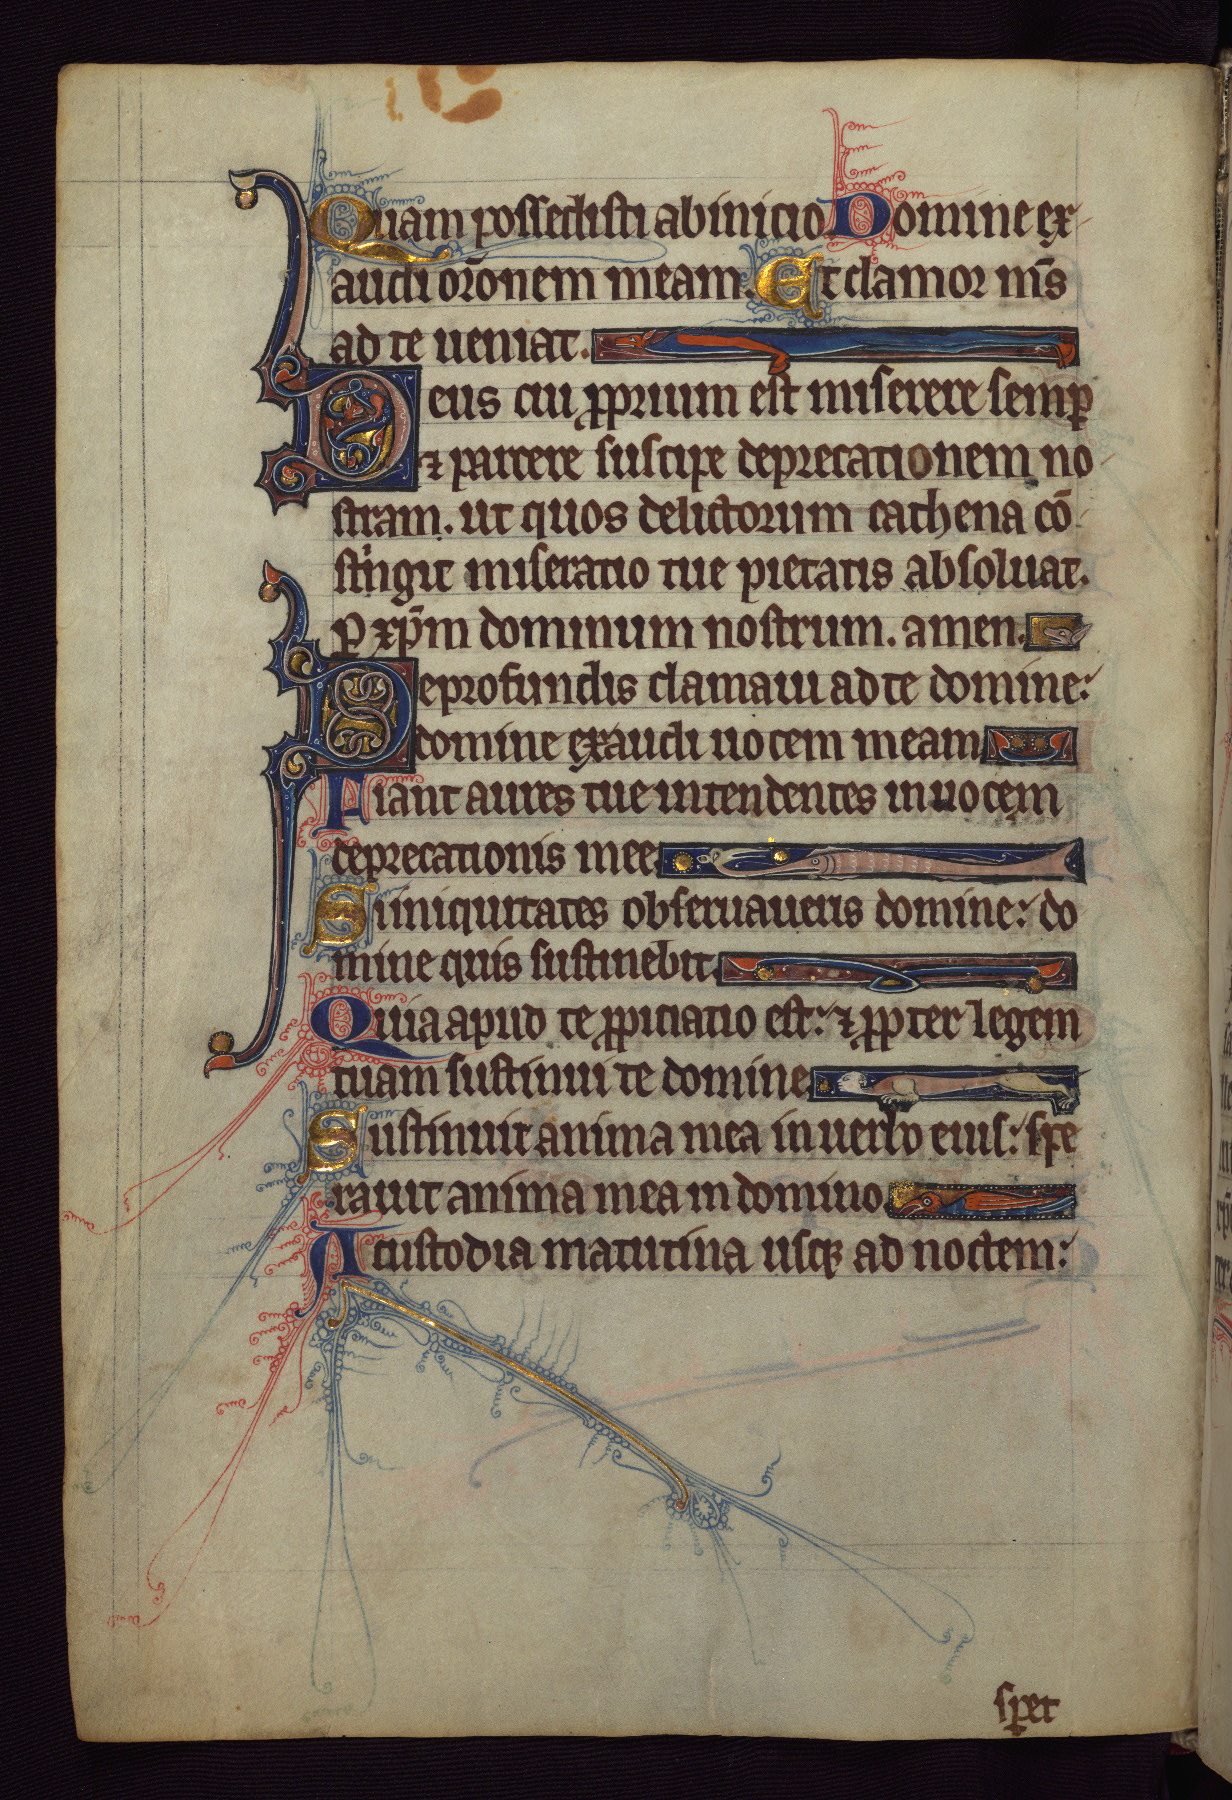 Quam possedisti ab inicio Domine ex-
audi orõnem meam. Et clamor mš
ad te ueniat.
Deus cui ꝓprium est miserere semꝑ
⁊ parcere suscipe deprecationem no-
stram. ut quos delictorum cathena cõ-
stⁱngit miseratio tue pietatis absoluat.
ꝑ xp̄m dominum nostrum. amen.
De profundis clamaui ad te domine:
domine exaudi uocem meam
Fiant aures tue intendentes in uocem
deprecationis mee
Si iniquitates obseruaueris domine: do
mine quis sustinebit
Quia apud te ꝓpiciatio est: ⁊ ꝓpter legem
tuam sustinui te domine
Sustinuit anima mea in uerbo eius: spe
rauit anima mea in domino
A custodia matutina usqꝫ ad noctem:
sꝑet